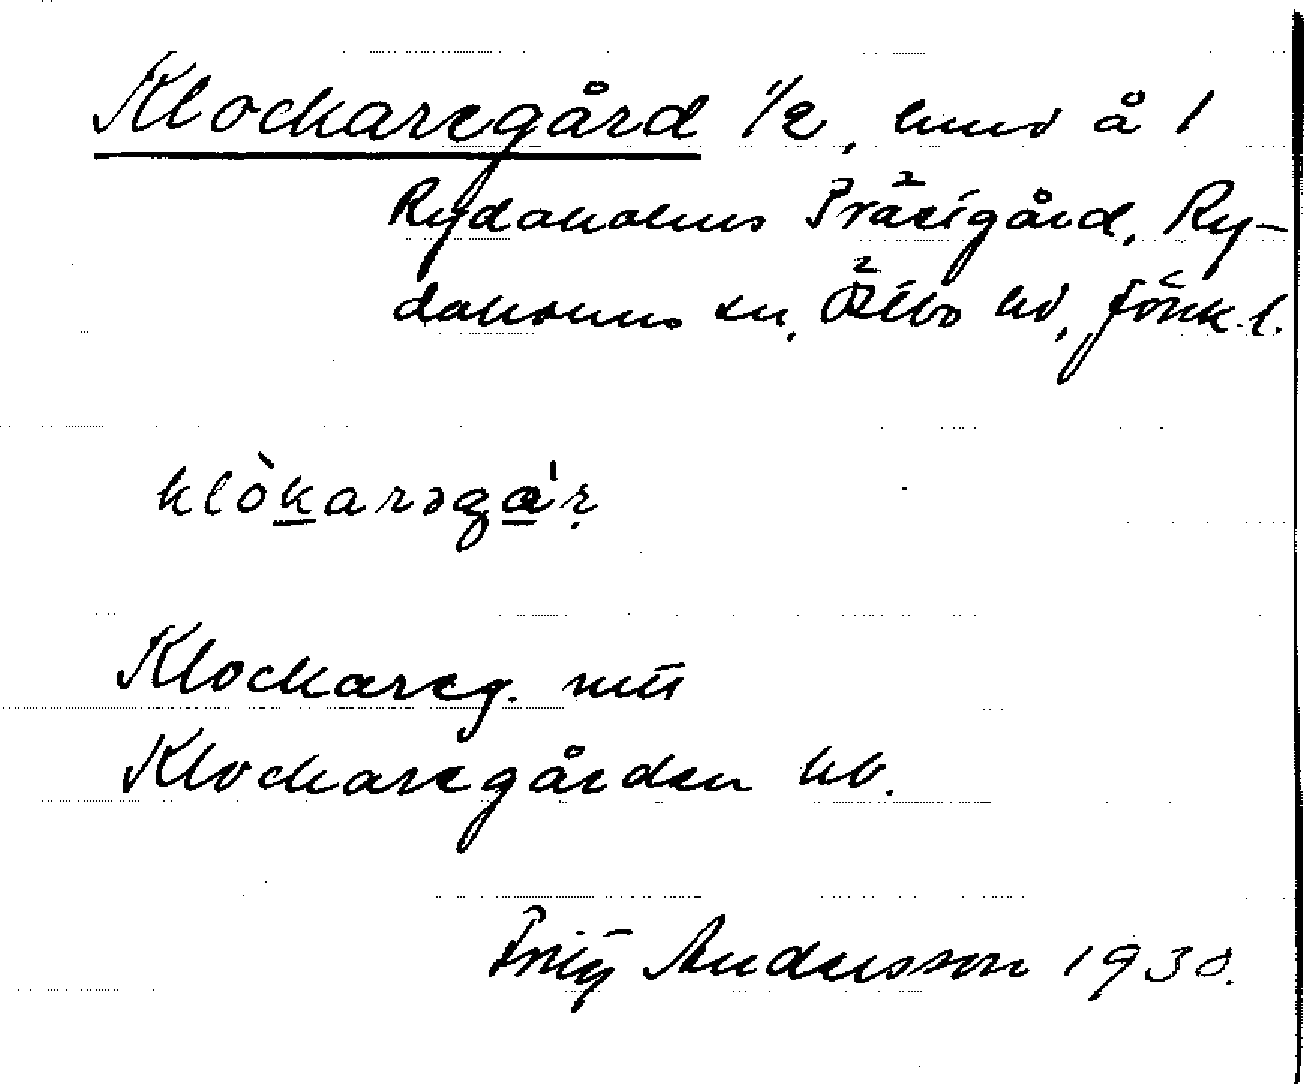 Klockaregård 1/2, hmd å 1
Rydaholms Prästgård, Ry-
daholms sn, Östbo hd, Jönk. l.
klòkarəga'r
Klockareg.
Klockaregården hb.
Andersson 1930.